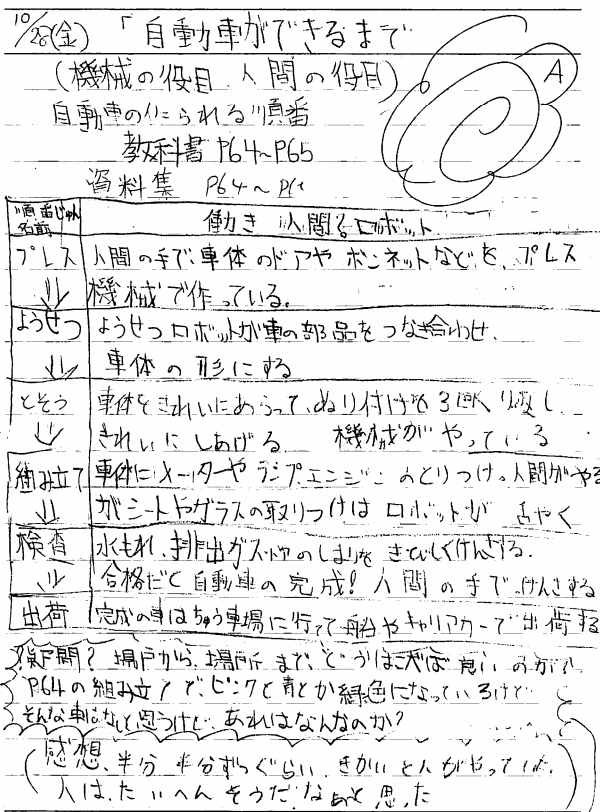 10/28(金) 「自動車ができるまで
A
(機械の役目 人間の役目)
自動車の作られる順番
教科書 P64～P65
資料集 P64～
順番じゅん 名前
働き 人間？ロボット
プレス
人間の手で、車体のドアやボンネットなどを、プレス
機械で作っている。
ようせつ
ようせつロボットが車の部品をつなぎ合わせ、
車体の形にする
とそう
車体をきれいにあらって、ぬり付けを3回くり返し
きれいにしあげる 機械がやっている
組み立て
車体にメーターやランプ、エンジンのとりつけ。人間がやる
がシートやガラスの取りつけはロボットが
検査
水もれ、排出ガス、のしまりをきびしくけんさする。
合格だと自動車の完成！人間の手でけんさする
出荷
完成の車はちゅう車場に行って船やキャリアカーで出荷する
？疑問？ 場所から、場所まで、どうはこべば良いのか？
P64の組み立てで、ピンクと青とか緑色になっているけど
そんな車はないと思うけど、あれはなんなのか？
感想、半分半分ずつぐらい、きかいと人がやっていて、
人は、たいへんそうだなぁと思った